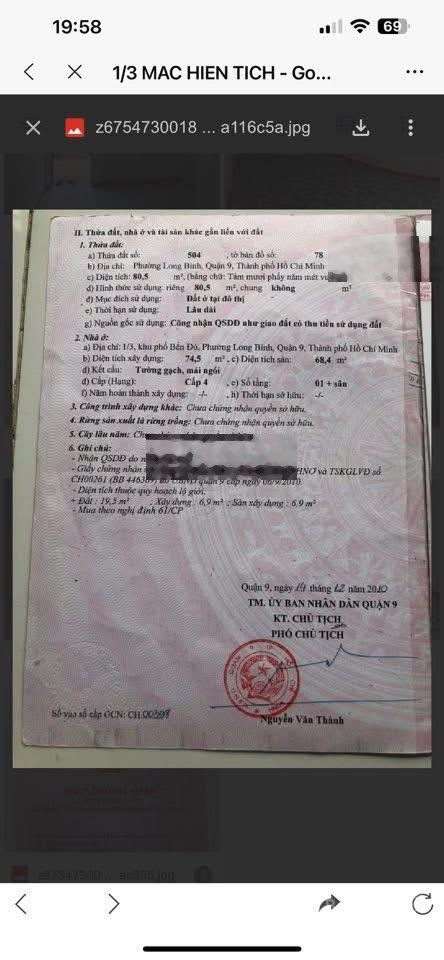 19:58
69
1/3 MAC HIEN TICH - Go...
z6754730018 ... a116c5a.jpg
II. Thửa đất, nhà ở và tài sản khác gắn liền với đất
1. Thửa đất:
a) Thửa đất số: 504 , tờ bản đồ số: 78
b) Địa chỉ: Phường Long Bình, Quận 9, Thành phố Hồ Chí Minh
c) Diện tích: 80,5 m², (bằng chữ: Tám mươi phẩy năm mét
d) Hình thức sử dụng: riêng 80,5 m², chung không m²
đ) Mục đích sử dụng: Đất ở tại đô thị
e) Thời hạn sử dụng: Lâu dài
g) Nguồn gốc sử dụng: Công nhận QSDĐ như giao đất có thu tiền sử dụng đất
2. Nhà ở:
a) Địa chỉ: 1/3, khu phố Bến Đò, Phường Long Bình, Quận 9, Thành phố Hồ Chí Minh
b) Diện tích xây dựng: 74,5 m² , c) Diện tích sàn: 68,4 m²
d) Kết cấu: Tường gạch, mái ngói
đ) Cấp (Hạng): Cấp 4 , e) Số tầng: 01 + sân
f) Năm hoàn thành xây dựng: -/- , h) Thời hạn sở hữu: -/-
3. Công trình xây dựng khác: Chưa chứng nhận quyền sở hữu.
4. Rừng sản xuất là rừng trồng: Chưa chứng nhận quyền sở hữu.
5. Cây lâu năm:
6. Ghi chú:
- Nhận QSDĐ do
- Giấy chứng nhận HNO và TSKGLVĐ số
CH00261 (BB 446389) do UBND quận 9 cấp ngày 06/9/2010.
- Diện tích thuộc quy hoạch lộ giới:
+ Đất : 19,5 m² ; Xây dựng : 6,9 m² ; Sàn xây dựng : 6,9 m²
- Mua theo nghị định 61/CP
Quận 9, ngày 14 tháng 12 năm 2010
TM. ỦY BAN NHÂN DÂN QUẬN 9
KT. CHỦ TỊCH
PHÓ CHỦ TỊCH
Nguyễn Văn Thành
Số vào sổ cấp GCN: CH 00398